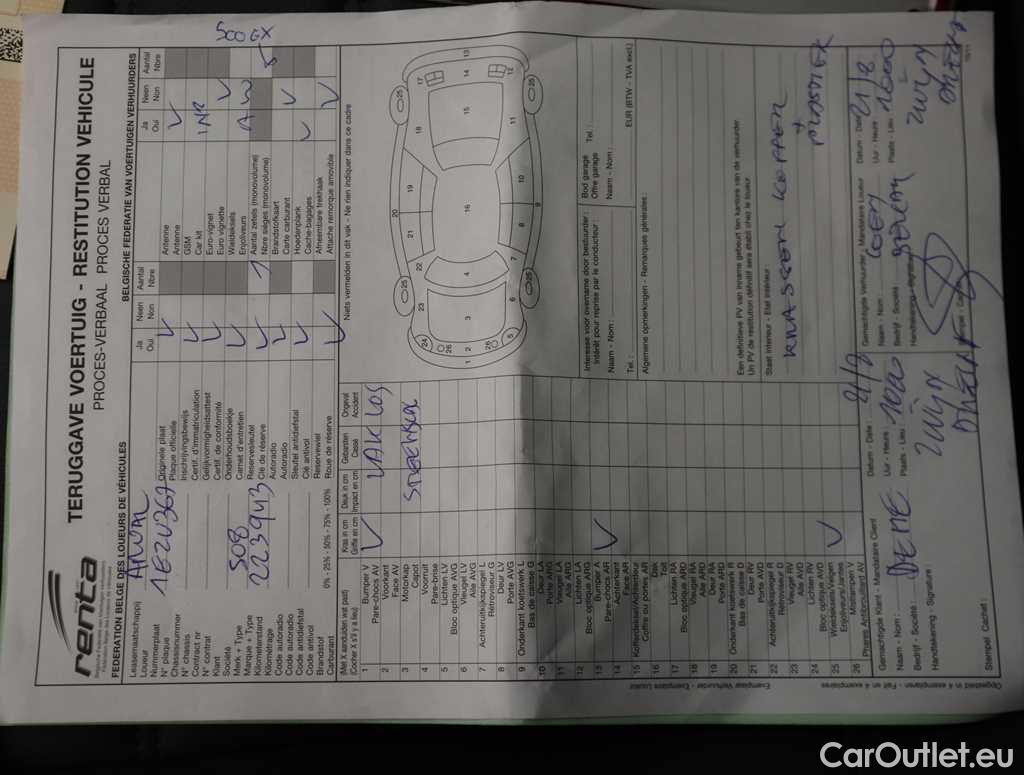 500 EX
TERUGGAVE VOERTUIG - RESTITUTION VEHICULE
PROCES-VERBAAL PROCES VERBAL
renta
FEDERATION BELGE DES LOUEURS DE VÉHICULES
BELGISCHE FEDERATIE VAN VOERTUIGEN VERHUURDERS
Leasemaatschappij
Loueur
Nummerplaat 1EZV367
N° plaque
Chassisnummer
N° chassis
Contract nr
N° contrat
Klant
Société
Merk + Type 508
Marque + Type
Kilometerstand 223943
Kilométrage
Code autoradio
Code autoradio
Code antidiefstal
Code antivol
Brandstof
Carburant 0% - 25% - 50% - 75% - 100%
Ja Neen Aantal
Oui Non Nbre
Originele plaat
Plaque officielle
Inschrijvingsbewijs
Certif. d'immatriculation
Gelijkvormigheidsattest
Certif. de conformité
Onderhoudsboekje
Carnet d'entretien
Reservesleutel 1
Clé de réserve
Autoradio
Autoradio
Sleutel antidiefstal
Clé antivol
Reservewiel
Roue de réserve
Ja Neen Aantal
Oui Non Nbre
Antenne
Antenne
GSM
Car kit
Euro-vignet
Euro vignette
Wieldeksels
Enjoliveurs
Aantal zetels (monovolume) 5
Nbre sièges (monovolume)
Brandstofkaart
Carte carburant
Hoedenplank
Cache-bagages
Afneembare trekhaak
Attache remorque amovible
(Met X aanduiden wat past)
(Cocher X s'il y a lieu)
Kras in cm Deuk in cm Gebarsten Ongeval
Griffe en cm Impact en cm Cassé Accident
1 Bumper V LAK LOS
Pare-chocs AV
2 Voorkant
Face AV
3 Motorkap
Capot
4 Voorruit
Pare-brise
5 Lichten LV
Bloc optique AVG
6 Vleugel LV
Aile AVG
7 Achteruitkijkspiegel L
Rétroviseur G
8 Deur LV
Porte AVG
9 Onderkant koetswerk L
Bas de caisse G
10 Deur LA
Porte ARG
11 Vleugel LA
Aile ARG
12 Lichten LA
Bloc optique ARG
13 Bumper A
Pare-chocs AR
14 Achterkant
Face AR
15 Kofferdeksel/Achterdeur
Coffre ou porte AR
16 Dak
Toit
17 Lichten RA
Bloc optique ARD
18 Vleugel RA
Aile ARD
19 Deur RA
Porte ARD
20 Onderkant koetswerk R
Bas de caisse D
21 Deur RV
Porte AVD
22 Achteruitkijkspiegel R
Rétroviseur D
23 Vleugel RV
Aile AVD
24 Lichten RV
Bloc optique AVD
25 Wieldeksels/Velgen
Enjoliveurs/Jantes
26 Mistlampen V
Phares Antibrouillard AV
Niets vermelden in dit vak - Ne rien indiquer dans ce cadre
Interesse voor overname door bestuurder:
Intérêt pour reprise par le conducteur:
Naam - Nom:
Tel.:
Bod garage
Offre garage Tel.:
Naam - Nom:
EUR (BTW - TVA excl.)
Algemene opmerkingen - Remarques générales:
Een definitieve PV van inname gebeurt ten kantore van de verhuurder.
Un PV de restitution définitif sera établi chez le loueur.
Staat interieur - Etat intérieur:
Gemachtigde Klant - Mandataire Client
Naam - Nom:
Bedrijf - Société:
Handtekening - Signature:
Stempel Cachet:
Datum - Date: 21/8
Uur - Heure:
Plaats - Lieu:
Gemachtigde Verhuurder - Mandataire Loueur
Naam - Nom:
Bedrijf - Société:
Handtekening - Signature:
Stempel - Cachet:
Datum - Date: 21/8
Uur - Heure:
Plaats - Lieu:
Opgesteld in 4 exemplaren - Fait en 4 exemplaires
Exemplaar Verhuurder - Exemplaire Loueur
CarOutlet.eu